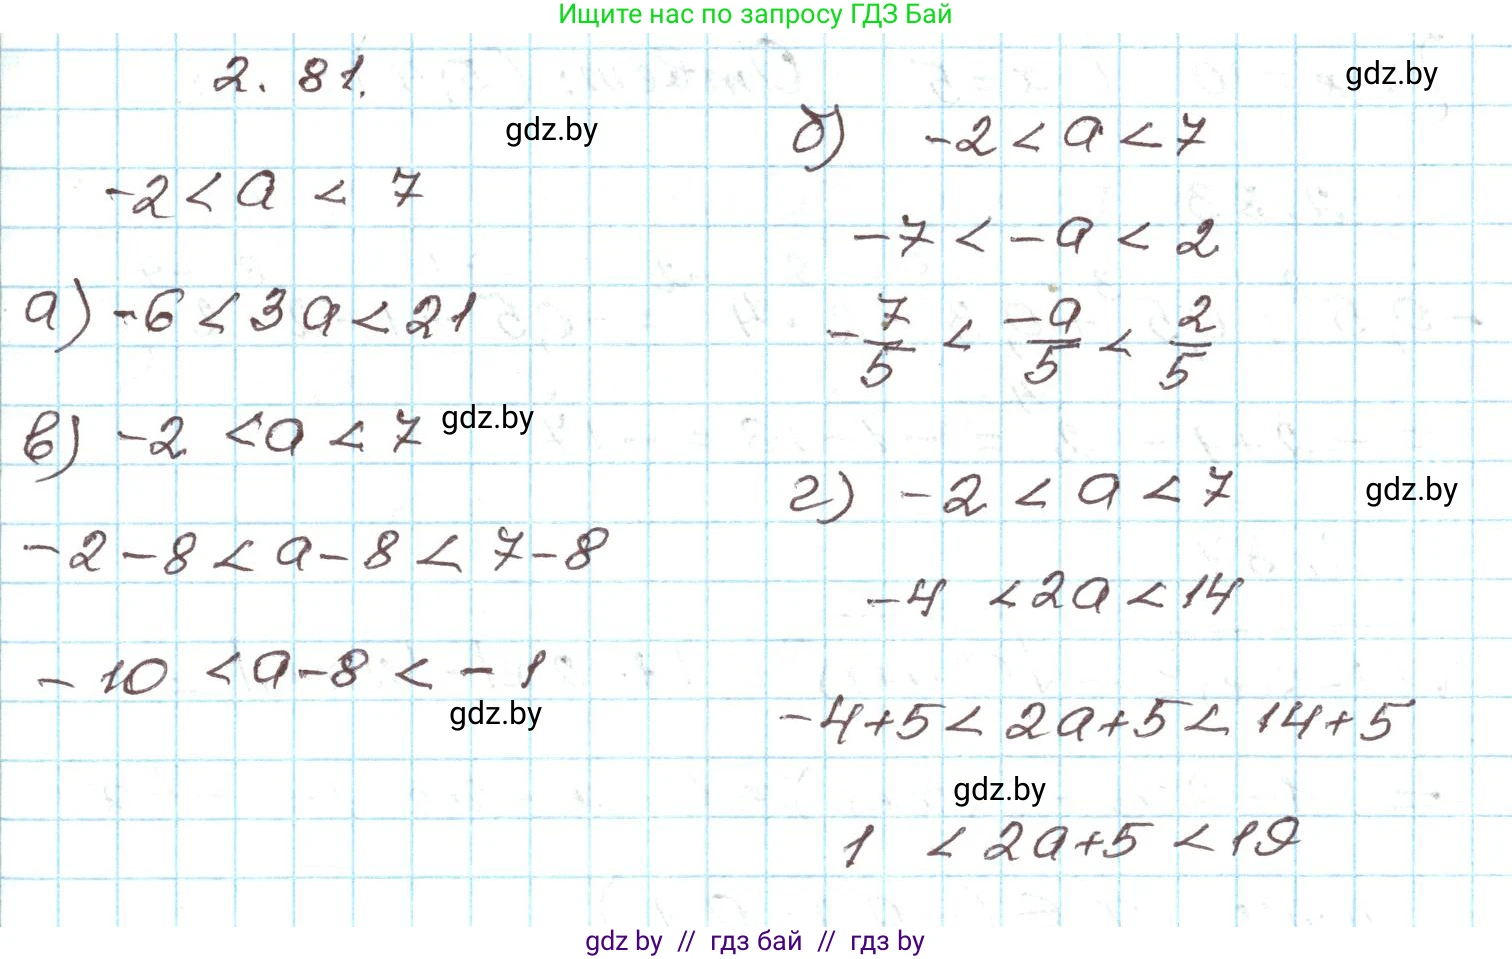 Ищите нас по запросу ГДЗ Бай
2. 81.
gdz.by
gdz.by
-2 < a < 7
а) -6 < 3a < 21
в) -2 < a < 7
gdz.by
-2 - 8 < a - 8 < 7 - 8
-10 < a - 8 < -1
gdz.by
б) -2 < a < 7
-7 < -a < 2
-7/5 < -a/5 < 2/5
г) -2 < a < 7
gdz.by
-4 < 2a < 14
-4+5 < 2a+5 < 14+5
gdz.by
1 < 2a+5 < 19
gdz by // гдз бай // гдз by